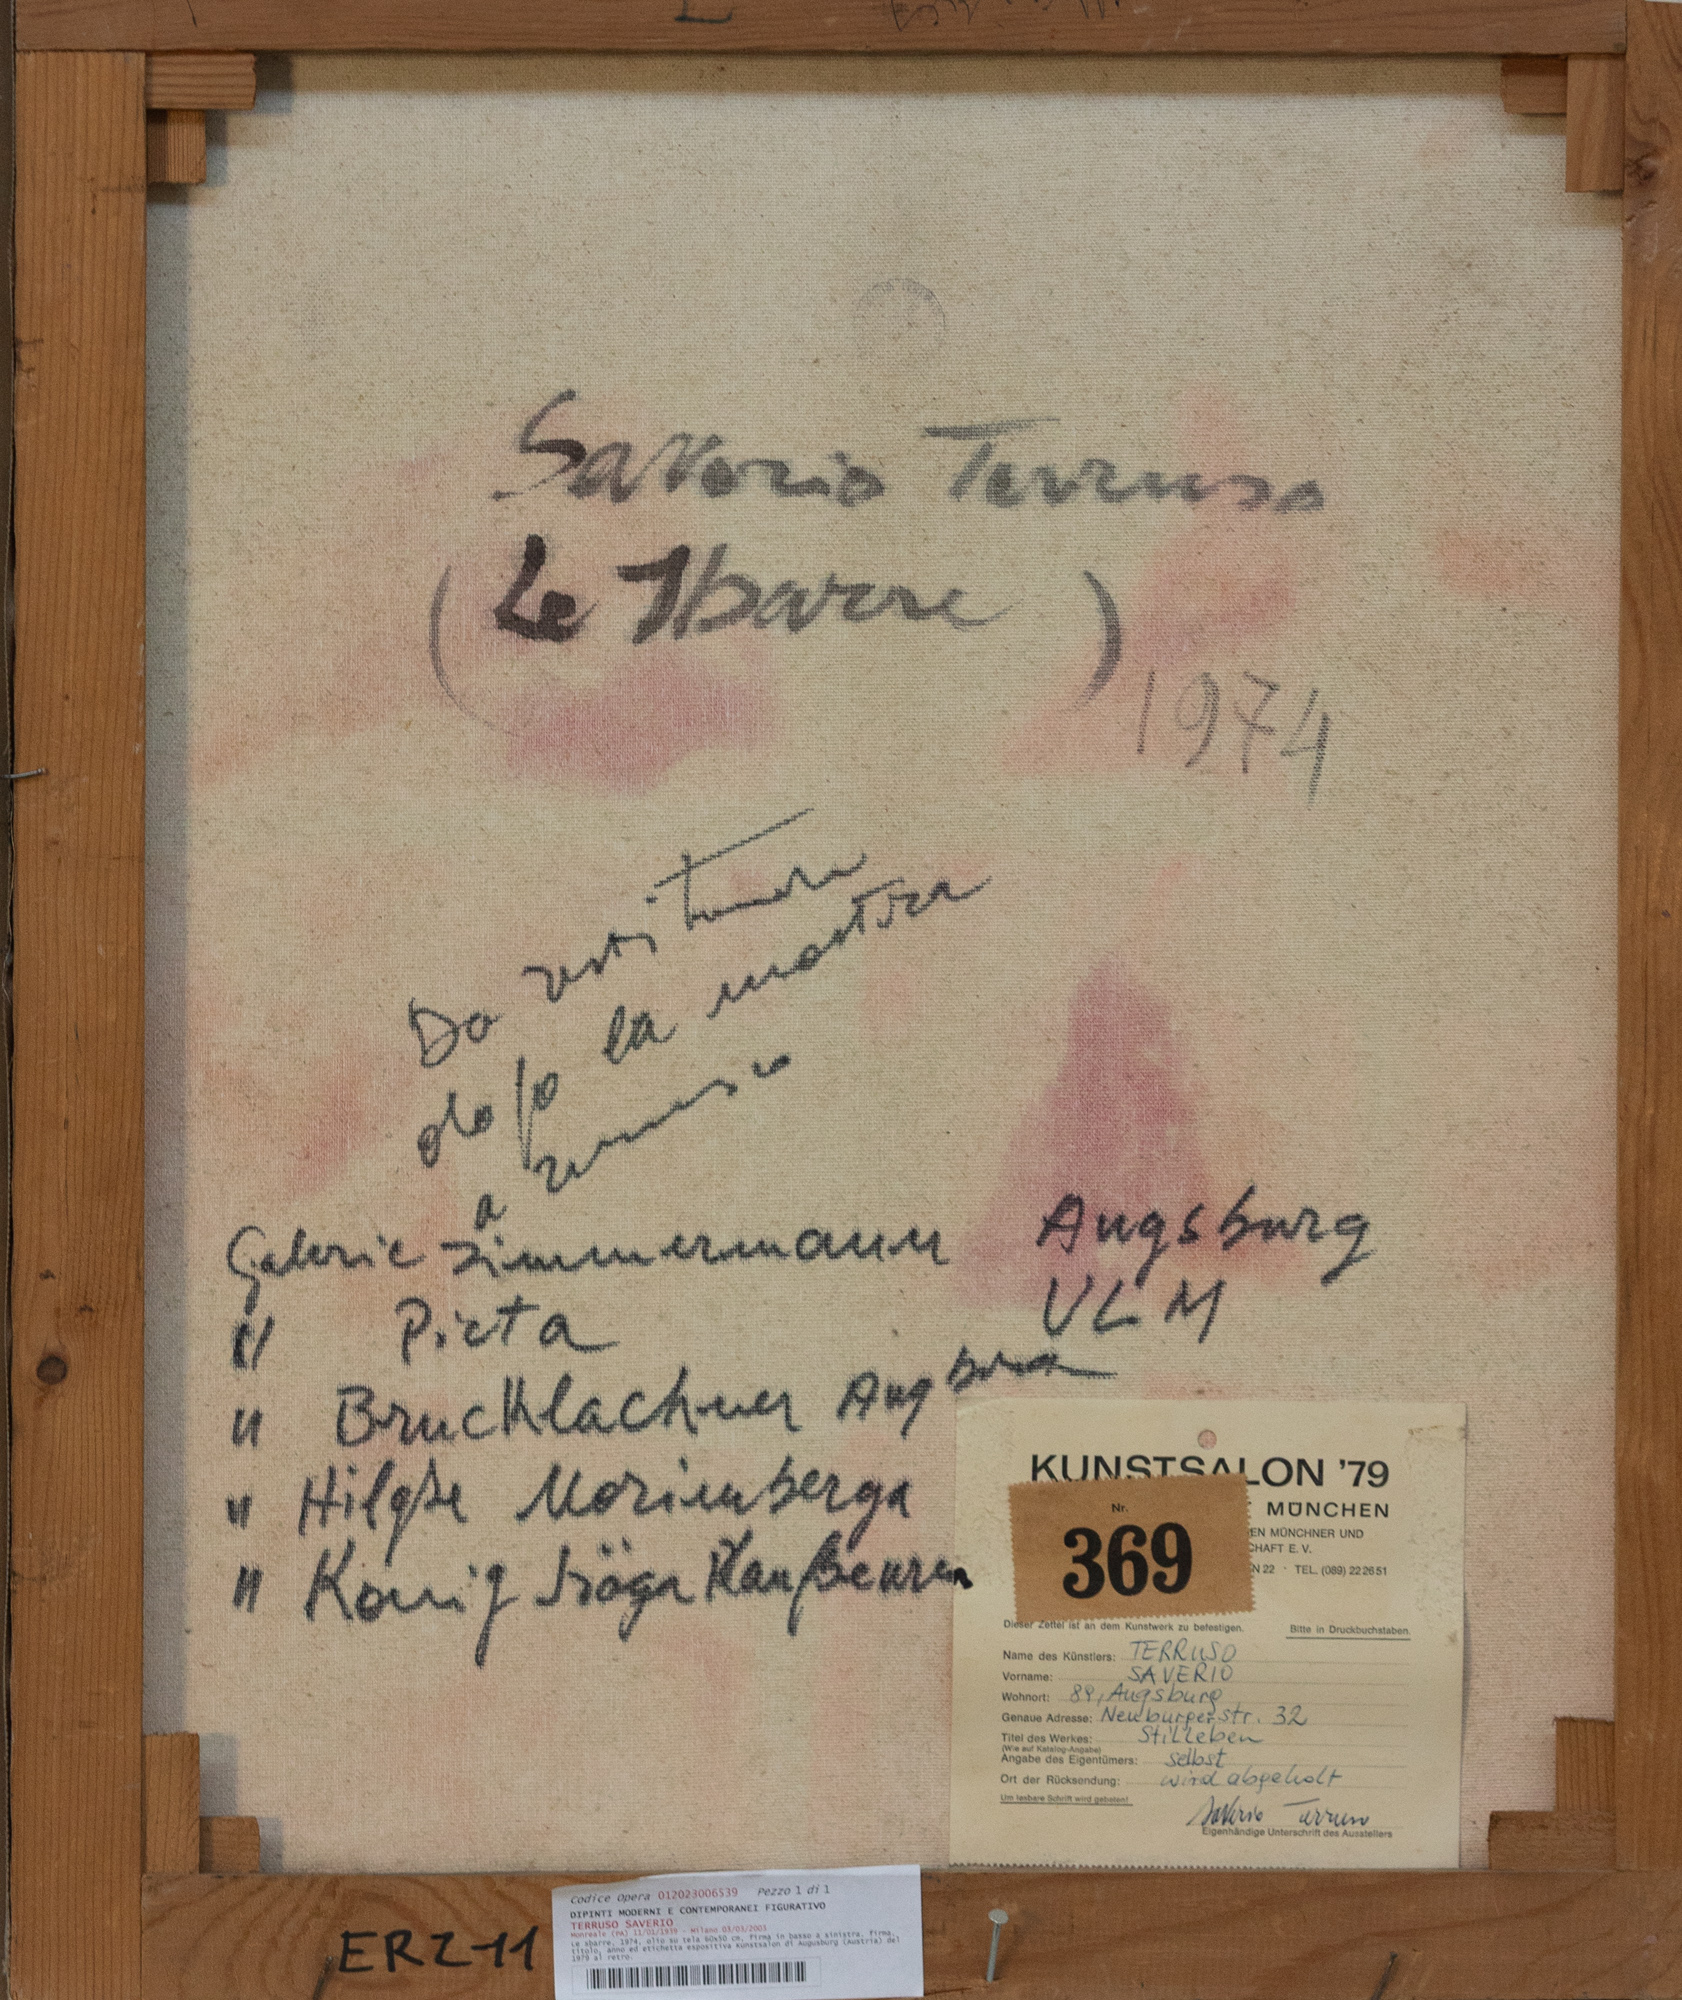 Saverio Terruso
(Le Sbarre)
1974
Da restituire
dopo la mostra
a
Galerie Zimmermann Augsburg
" Pieta ULM
" Brucklachner
" Hilgbe
" König Kaufbeuren
KUNSTSALON '79
MÜNCHEN
EN MÜNCHNER UND
CHAFT E. V.
N 22 · TEL. (089) 22 26 51
Nr.
369
Dieser Zettel ist an dem Kunstwerk zu befestigen. Bitte in Druckbuchstaben.
Name des Künstlers: TERRUSO
Vorname: SAVERIO
Wohnort: 89, Augsburg
Genaue Adresse: Neuburgerstr. 32
Titel des Werkes: Stilleben
(Wie auf Katalog-Angabe)
Angabe des Eigentümers: selbst
Ort der Rücksendung: wird abgeholt
Um lesbare Schrift wird gebeten!
Saverio Terruso
Eigenhändige Unterschrift des Ausstellers
Codice Opera 012023006539 Pezzo 1 di 1
DIPINTI MODERNI E CONTEMPORANEI FIGURATIVO
TERRUSO SAVERIO
Monreale (PA) 11/01/1939 - Milano 03/03/2003
Le sbarre, 1974, olio su tela 60x50 cm, firma in basso a sinistra, firma,
titolo, anno ed etichetta espositiva Kunstsalon di Augusburg (Austria) del
1979 al retro.
ERZ-11